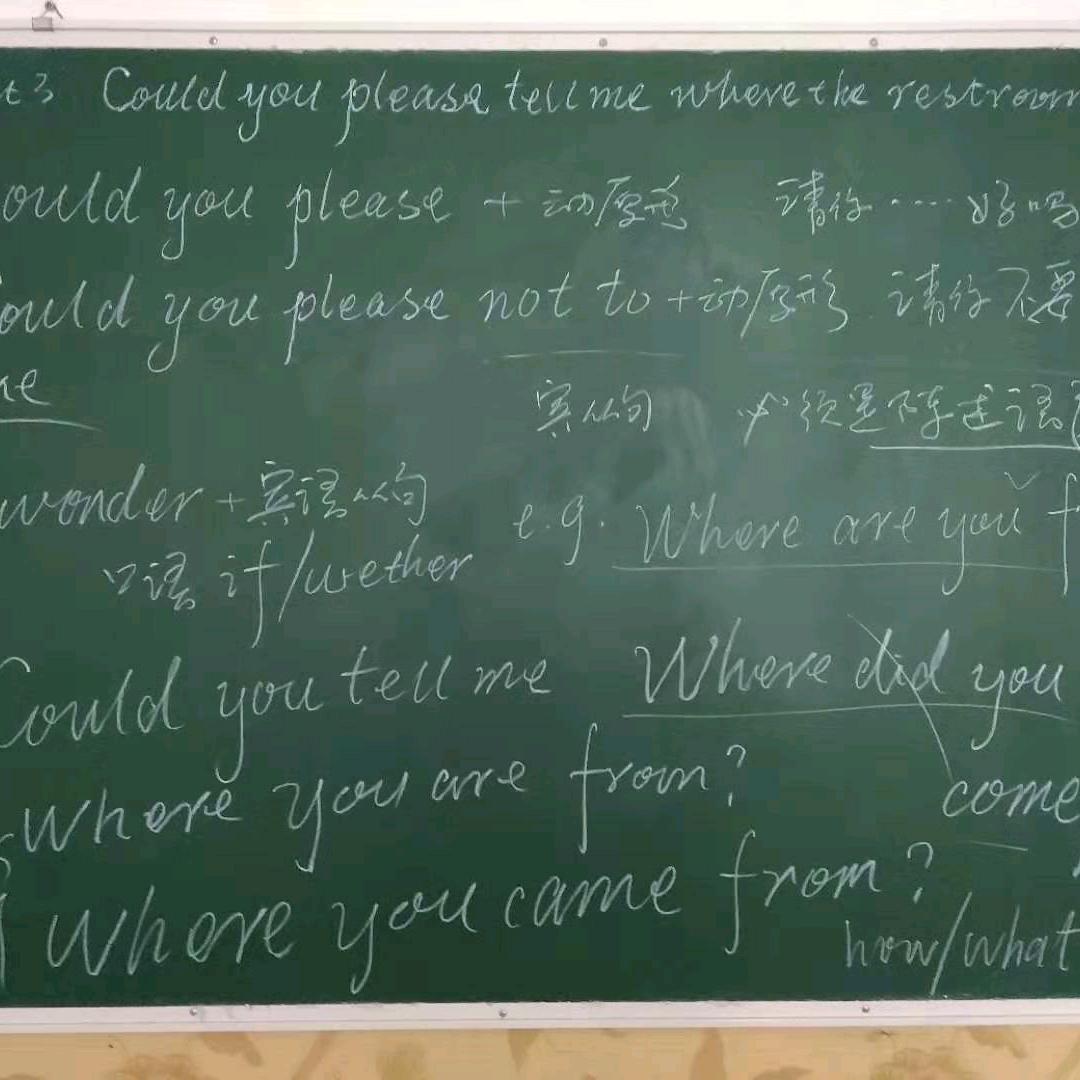 t3 Could you please tell me where the restroom
ould you please + 动原形 请你····好吗
ould you please not to + 动/原形 请你不要
ke
宾从句 必须是陈述语
wonder + 宾语从句
e.g. Where are you f
口语 if/wether
Could you tell me Where did you
where you are from?
come
where you came from?
how/what